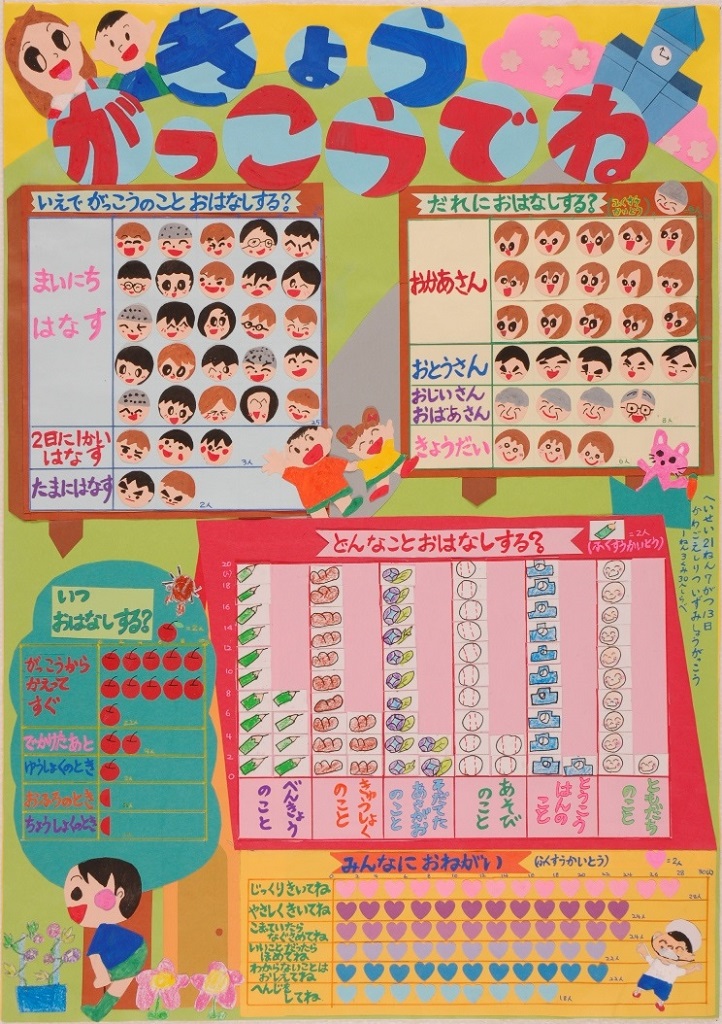 きょう
がっこうでね
いえで がっこうのこと おはなしする?
まいにち
はなす
25
2日に1かい
はなす
3人
たまにはなす
2人
だれにおはなしする?
おかあさん
おとうさん
おじいさん
おばあさん
8人
きょうだい
6人
どんなことおはなしする?
=2人
(ふくすうかいとう)
20
(人)
18
16
14
12
10
8
6
4
2
0
べんきょう
のこと
きゅうしょく
のこと
そだてた
あさがお
のこと
あそび
のこと
とうこう
はんの
こと
ともだち
のこと
へいせい21ねん7がつ13日
かわごえしりついずみしょうがっこう
1ねん3くみ30人しらべ
いつ
おはなしする?
=2人
がっこうから
かえって
すぐ
22人
でかけたあと
4人
ゆうしょくのとき
2人
おふろのとき
1人
ちょうしょくのとき
1人
みんなに おねがい
(ふくすうかいとう)
=2人
じっくりきいてね
28人
やさしくきいてね
24人
こまっていたら
なぐさめてね
24人
いいことだったら
ほめてね
22人
わからないことは
おしえてね
22人
へんじを
してね
18人